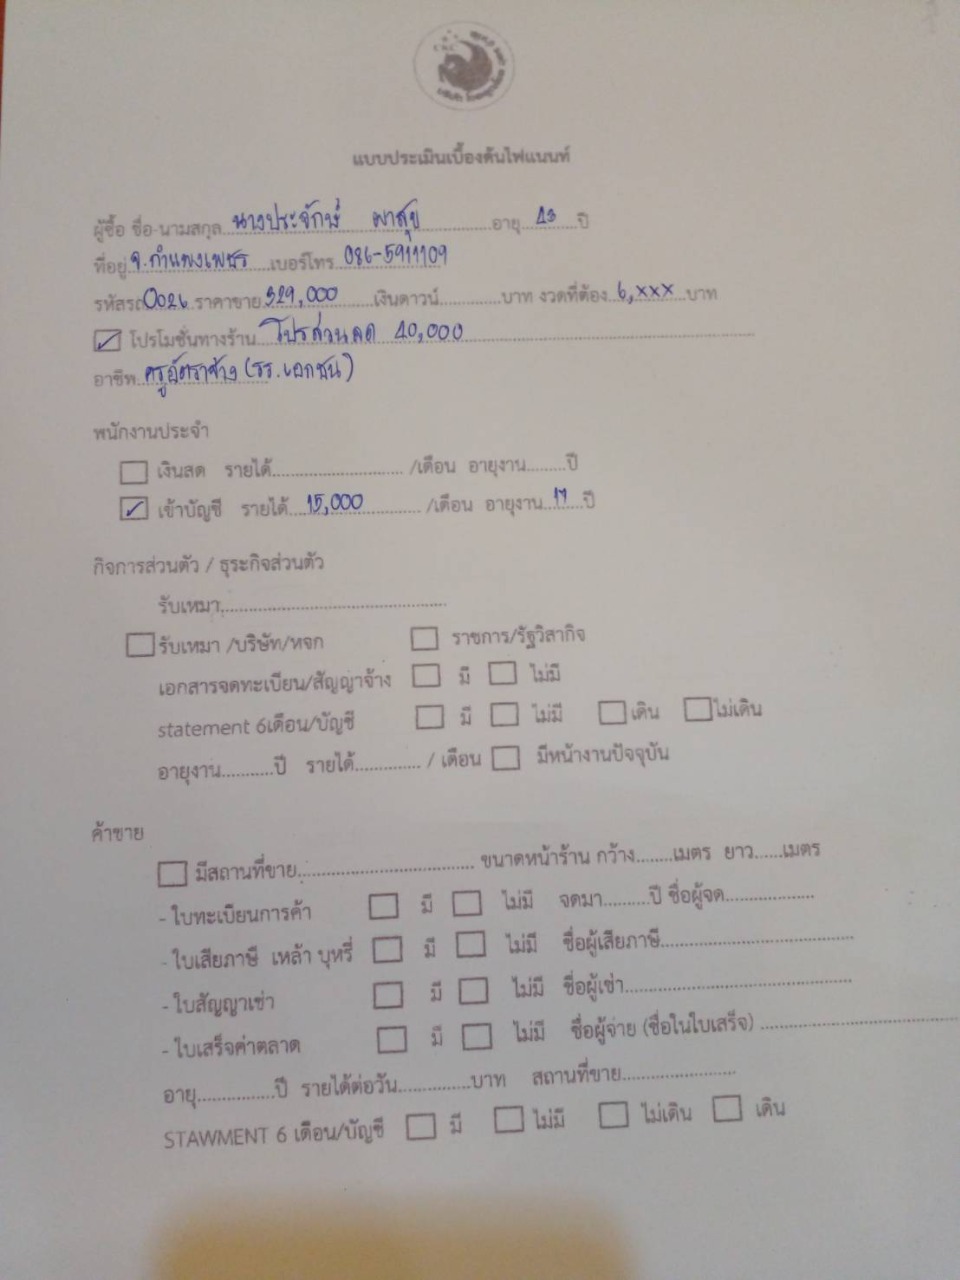 แบบประเมินเบื้องต้นไฟแนนท์
ผู้ซื้อ ชื่อ-นามสกุล นางประจักษ์ ผาสุข อายุ 43 ปี
ที่อยู่ จ.กำแพงเพชร เบอร์โทร 086-5911109
รหัสรถ 0026 ราคาขาย 329,000 เงินดาวน์ บาท งวดที่ต้อง 6,xxx บาท
โปรโมชั่นทางร้าน โปรส่วนลด 40,000
อาชีพ ครูอัตราจ้าง (รร.เอกชน)
พนักงานประจำ
เงินสด รายได้ /เดือน อายุงาน ปี
เข้าบัญชี รายได้ 15,000 /เดือน อายุงาน 17 ปี
กิจการส่วนตัว / ธุระกิจส่วนตัว
รับเหมา
รับเหมา /บริษัท/หจก ราชการ/รัฐวิสากิจ
เอกสารจดทะเบียน/สัญญาจ้าง มี ไม่มี
statement 6เดือน/บัญชี มี ไม่มี เดิน ไม่เดิน
อายุงาน ปี รายได้ / เดือน มีหน้างานปัจจุบัน
ค้าขาย
มีสถานที่ขาย ขนาดหน้าร้าน กว้าง เมตร ยาว เมตร
- ใบทะเบียนการค้า มี ไม่มี จดมา ปี ชื่อผู้จด
- ใบเสียภาษี เหล้า บุหรี่ มี ไม่มี ชื่อผู้เสียภาษี
- ใบสัญญาเช่า มี ไม่มี ชื่อผู้เช่า
- ใบเสร็จค่าตลาด มี ไม่มี ชื่อผู้จ่าย (ชื่อในใบเสร็จ)
อายุ ปี รายได้ต่อวัน บาท สถานที่ขาย
STAWMENT 6 เดือน/บัญชี มี ไม่มี ไม่เดิน เดิน